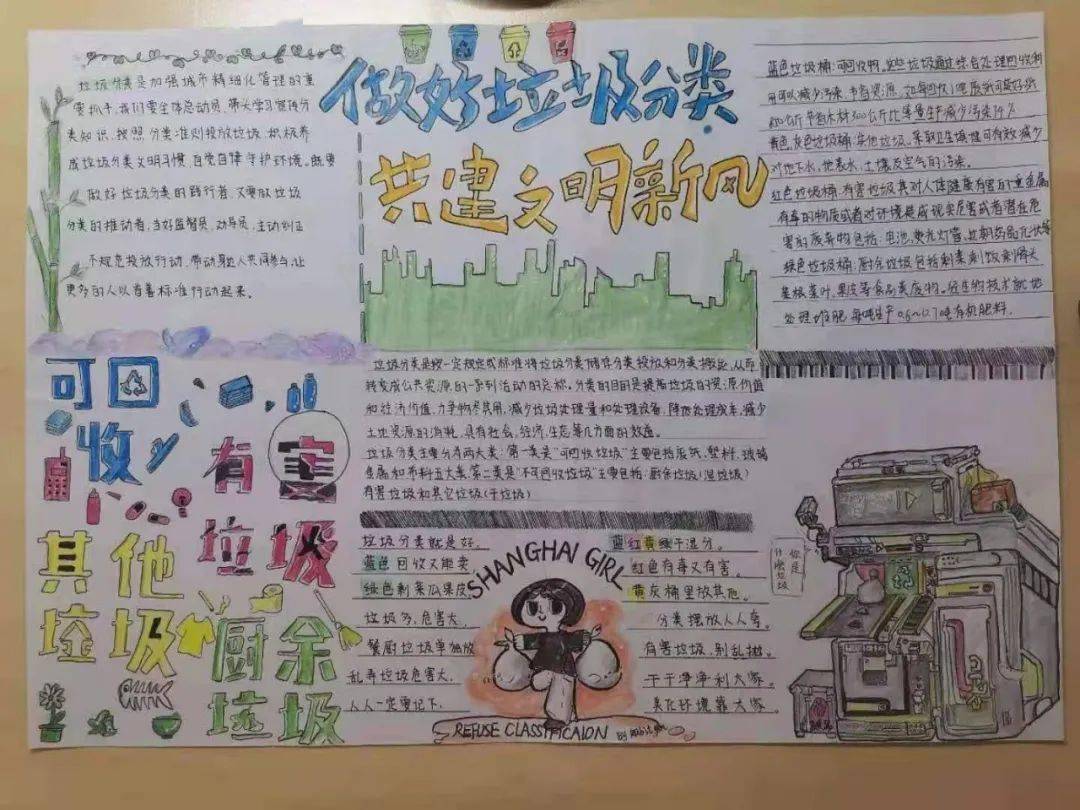 做好垃圾分类
共建文明新风
垃圾分类是加强城市精细化管理的重
要抓手,我们要全体总动员,带头学习宣传分
类知识,按照分类准则投放垃圾,积极养
成垃圾分类文明习惯,自觉自律守护环境。既要
做好垃圾分类的践行者,又要做垃圾
分类的推动者,当好监督员,劝导员,主动纠正
不规范投放行动,带动身边人共同参与,让
更多的人以首善标准行动起来。
蓝色垃圾桶:可回收物。这些垃圾通过综合处理回收利
用可以减少污染,节省资源。如每回收1吨废纸可造好纸
850公斤节省木材300公斤比等量生产减少污染74%
黄色,灰色垃圾桶:其他垃圾。采取卫生填埋可有效减少
对地下水,地表水,土壤及空气的污染。
红色垃圾桶:有害垃圾其对人体健康有害的重金属
有毒的物质或者对环境造成现实危害或者潜在危
害的废弃物包括:电池,荧光灯管,过期药品
绿色垃圾桶:厨余垃圾包括剩菜剩饭剩骨头
菜根菜叶,果皮等食品类废物。经生物技术就地
处理堆肥,每吨生产0.6~0.7吨有机肥料.
可回收
有害垃圾
其他垃圾
厨余垃圾
垃圾分类是按一定规定或标准将垃圾分类储存分类投放和分类搬运,从而
转变成公共资源的一系列活动的总称。分类的目的是提高垃圾的资源价值
和经济价值,力争物尽其用,减少垃圾处理量和处理设备,降低处理成本,减少
土地资源的消耗,具有社会,经济,生态等几方面的效益。
垃圾分类主要分有两大类:第一类是“可回收垃圾”主要包括废纸,塑料,玻璃
金属和布料五大类第二类是“不可回收垃圾”主要包括:厨余垃圾(湿垃圾)
有害垃圾和其它垃圾(干垃圾)
垃圾分类就是好.
蓝色回收又能卖.
绿色剩菜瓜果皮.
垃圾多,危害大.
餐厨垃圾单独放
乱弄垃圾危害大.
人人一定要记下.
SHANGHAI GIRL
REFUSE CLASSIFICAION
蓝红黄绿干湿分。
红色有毒又有害。
黄灰桶里放其他。
分类摆放人人夸。
有害垃圾,别乱抛。
干干净净利大家。
美化环境靠大家。
你是
什么垃圾